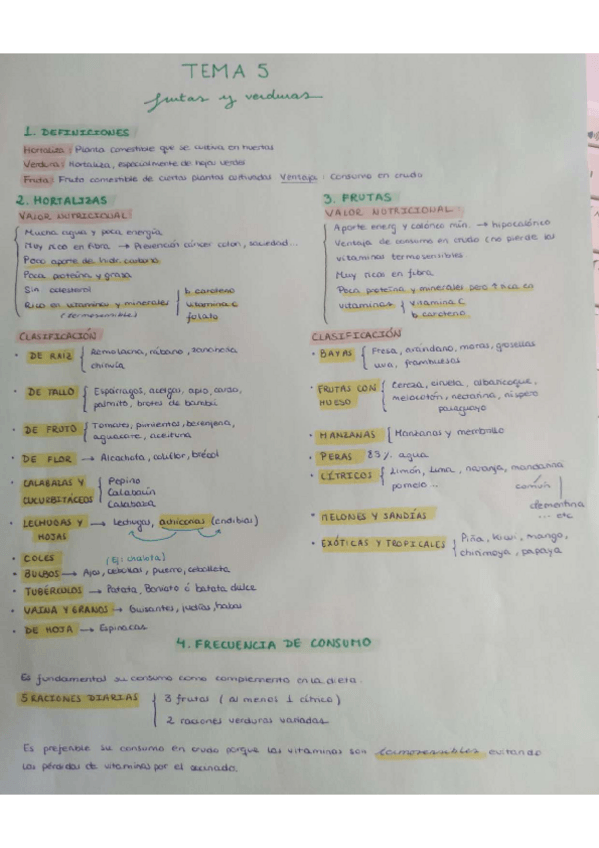 TEMA 5
frutas y verduras
1. DEFINICIONES
Hortaliza: Planta comestible que se cultiva en huertas
Verdura: Hortaliza, especialmente de hojas verdes
Fruta: Fruto comestible de ciertas plantas cultivadas Ventaja: Consumo en crudo
2. HORTALIZAS
VALOR NUTRICIONAL:
Mucha agua y poca energía
Muy rico en fibra → Prevención cáncer colon, saciedad...
Poco aporte de hidr. carbono
Poca proteína y grasa
Sin colesterol
Rico en vitaminas y minerales
(termosensible)
b. caroteno
vitamina C
folato
CLASIFICACIÓN
• DE RAIZ { Remolacha, rábano, zanahoria
chirivía
• DE TALLO { Espárragos, acelgas, apio, cardo,
palmito, brotes de bambú
• DE FRUTO { Tomates, pimientos, berenjena,
aguacate, aceituna
• DE FLOR → Alcachofa, coliflor, brécol
• CALABAZAS Y
CUCURBITÁCEOS
Pepino
Calabacín
Calabaza
• LECHUGAS Y → Lechugas, achicorias (endibias)
HOJAS
• COLES
(Ej: chalota)
• BULBOS → Ajos, cebollas, puerro, cebolleta
• TUBÉRCULOS → Patata, Boniato ó batata dulce
• VAINA Y GRANOS → Guisantes, judías, habas
• DE HOJA → Espinacas
3. FRUTAS
VALOR NUTRICIONAL:
Aporte energ y calórico min. → hipocalórico
Ventaja de consumo en crudo (no pierde las
vitaminas termosensibles
Muy ricos en fibra
Poca proteína y minerales pero ↑ rica en
vitaminas { vitamina C
b caroteno
CLASIFICACIÓN
• BAYAS { Fresa, arándano, moras, grosellas
uva, frambuesas
• FRUTAS CON
HUESO
Cereza, ciruela, albaricoque,
melocotón, nectarina, níspero
paraguayo
• MANZANAS { Manzanas y membrillo
• PERAS 83% agua
• CÍTRICOS { Limón, lima, naranja, mandarina
pomelo...
común
clementina
... etc
• MELONES Y SANDÍAS
• EXÓTICAS Y TROPICALES { Piña, kiwi, mango,
chirimoya, papaya
4. FRECUENCIA DE CONSUMO
Es fundamental su consumo como complemento en la dieta.
5 RACIONES DIARIAS { 3 frutas (al menos 1 cítrico)
2 raciones verduras variadas
Es preferible su consumo en crudo porque las vitaminas son termosensibles evitando
las pérdidas de vitaminas por el cocinado.